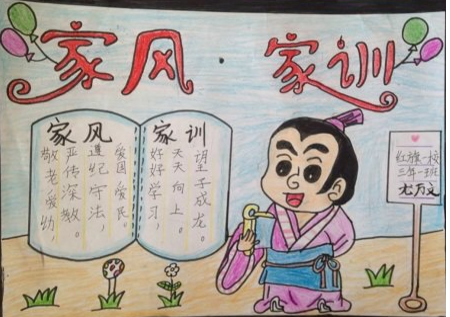 家风·家训
家风
敬老爱幼，
严传深教。
遵纪守法，
爱国爱民。
家训
好好学习，
天天向上。
望子成龙。
红旗一校
三年一班